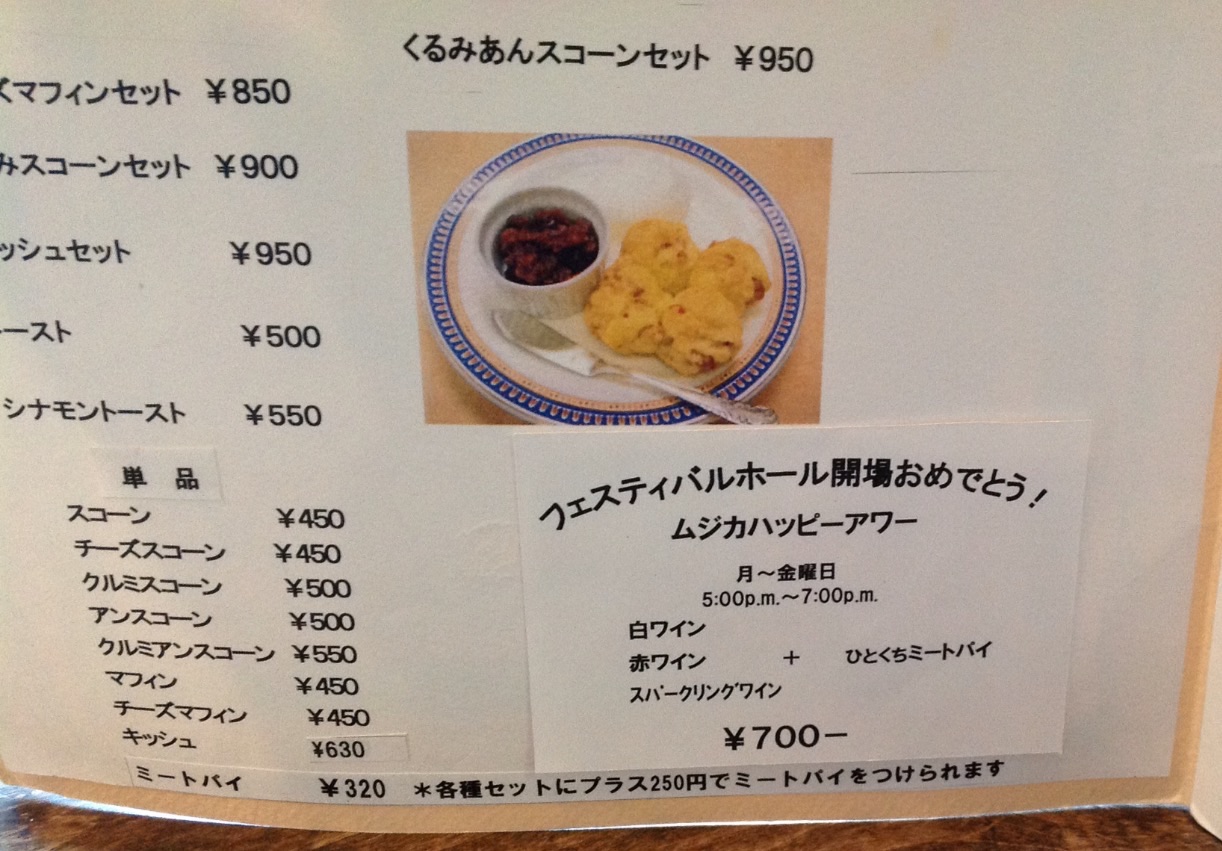 くるみあんスコーンセット ￥950
マフィンセット ￥850
みスコーンセット ￥900
ッシュセット ￥950
ースト ￥500
シナモントースト ￥550
単 品
スコーン ￥450
チーズスコーン ￥450
クルミスコーン ￥500
アンスコーン ￥500
クルミアンスコーン ￥550
マフィン ￥450
チーズマフィン ￥450
キッシュ ￥630
ミートパイ ￥320 ＊各種セットにプラス250円でミートパイをつけられます
フェスティバルホール開場おめでとう！
ムジカハッピーアワー
月～金曜日
5:00p.m.～7:00p.m.
白ワイン
赤ワイン ＋ ひとくちミートパイ
スパークリングワイン
￥700－